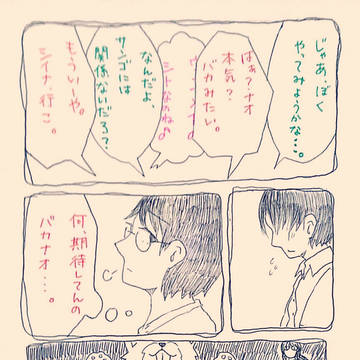 じゃあ、ぼく
やってみようかな…。
はぁ？ナオ
本気？
バカみたい。
なんだよ、
サンゴには
関係ないだろ？
もういーや。
シイナ、行こ。
何、期待してんの
バカナオ……。